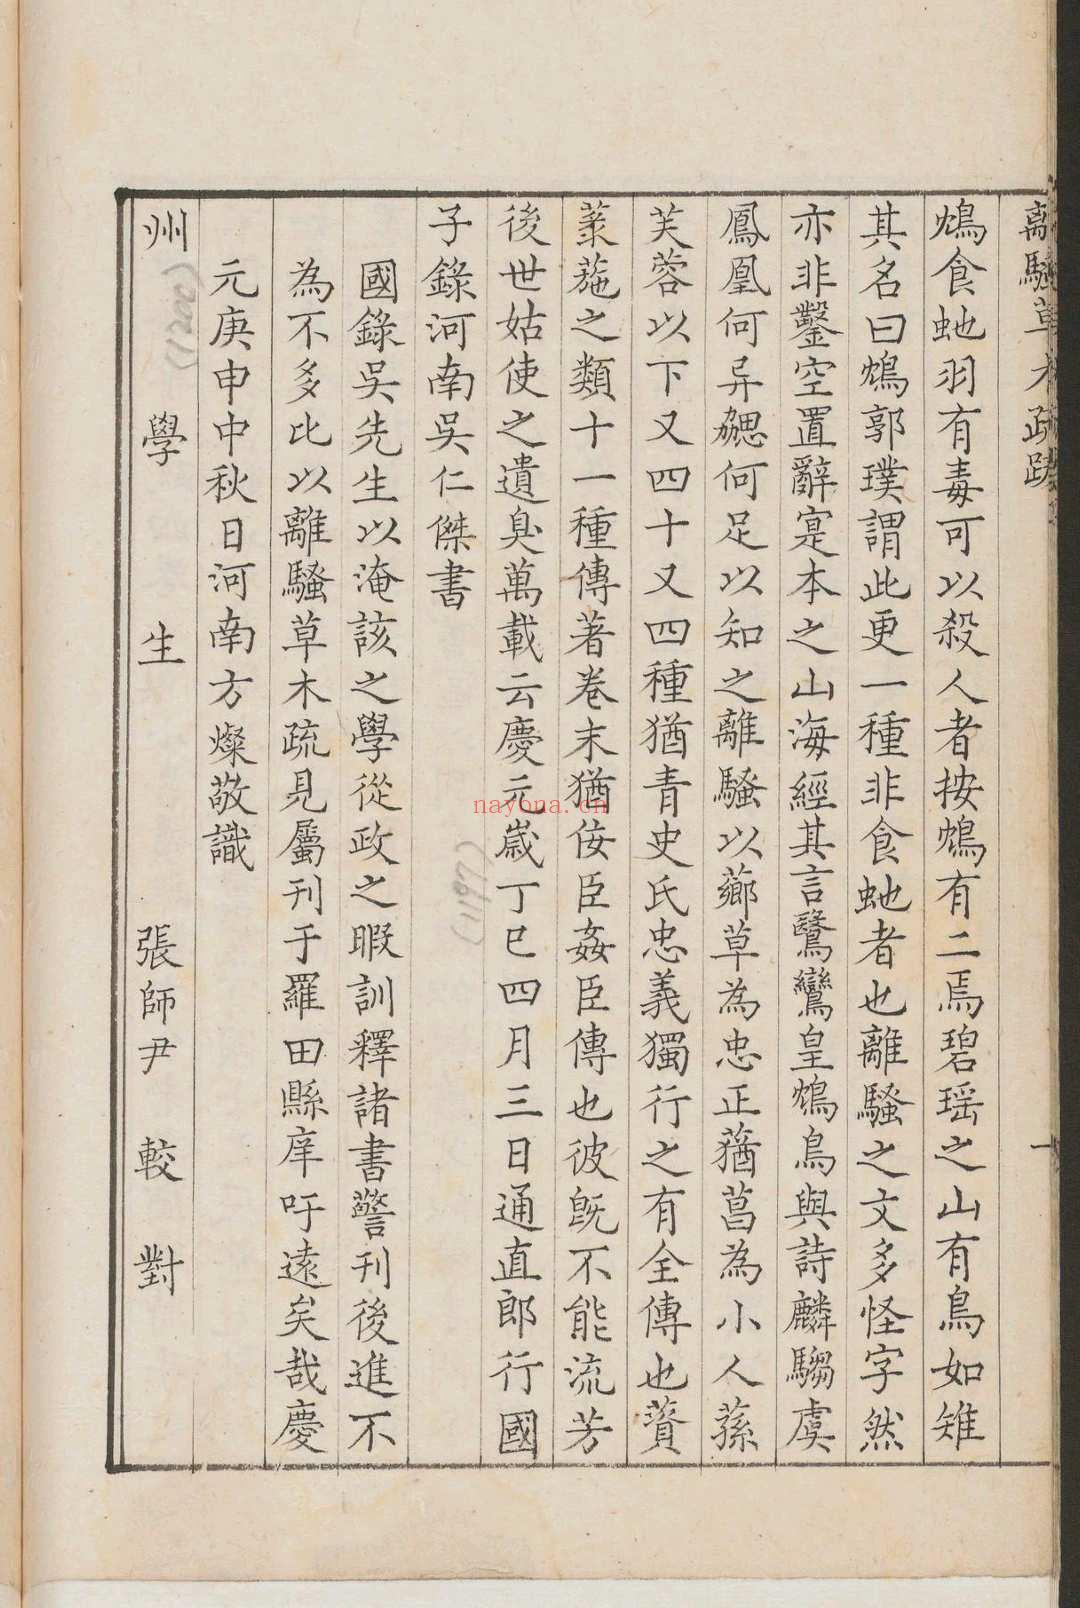 離騷草木疏跋
一
鴆食虵羽有毒可以殺人者按鴆有二焉碧瑶之山有鳥如雉
其名曰鴆郭璞謂此更一種非食虵者也離騷之文多怪字然
亦非鑿空置辭寔本之山海經其言鷖鸞皇鴆鳥與詩麟騶虞
鳳凰何异勰何足以知之離騷以薌草為忠正蕕菖為小人蓀
芙蓉以下又四十又四種猶青史氏忠義獨行之有全傳也薋
菉葹之類十一種傳著卷末猶佞臣姦臣傳也彼旣不能流芳
後世姑使之遺臭萬載云慶元歲丁巳四月三日通直郎行國
子錄河南吳仁傑書
國錄吳先生以淹該之學從政之暇訓釋諸書警刊後進不
為不多比以離騷草木疏見屬刊于羅田縣庠吁遠矣哉慶
元庚申中秋日河南方燦敬識
州 學 生 張師尹 較 對
nayona.cn
(1197)
(1200)